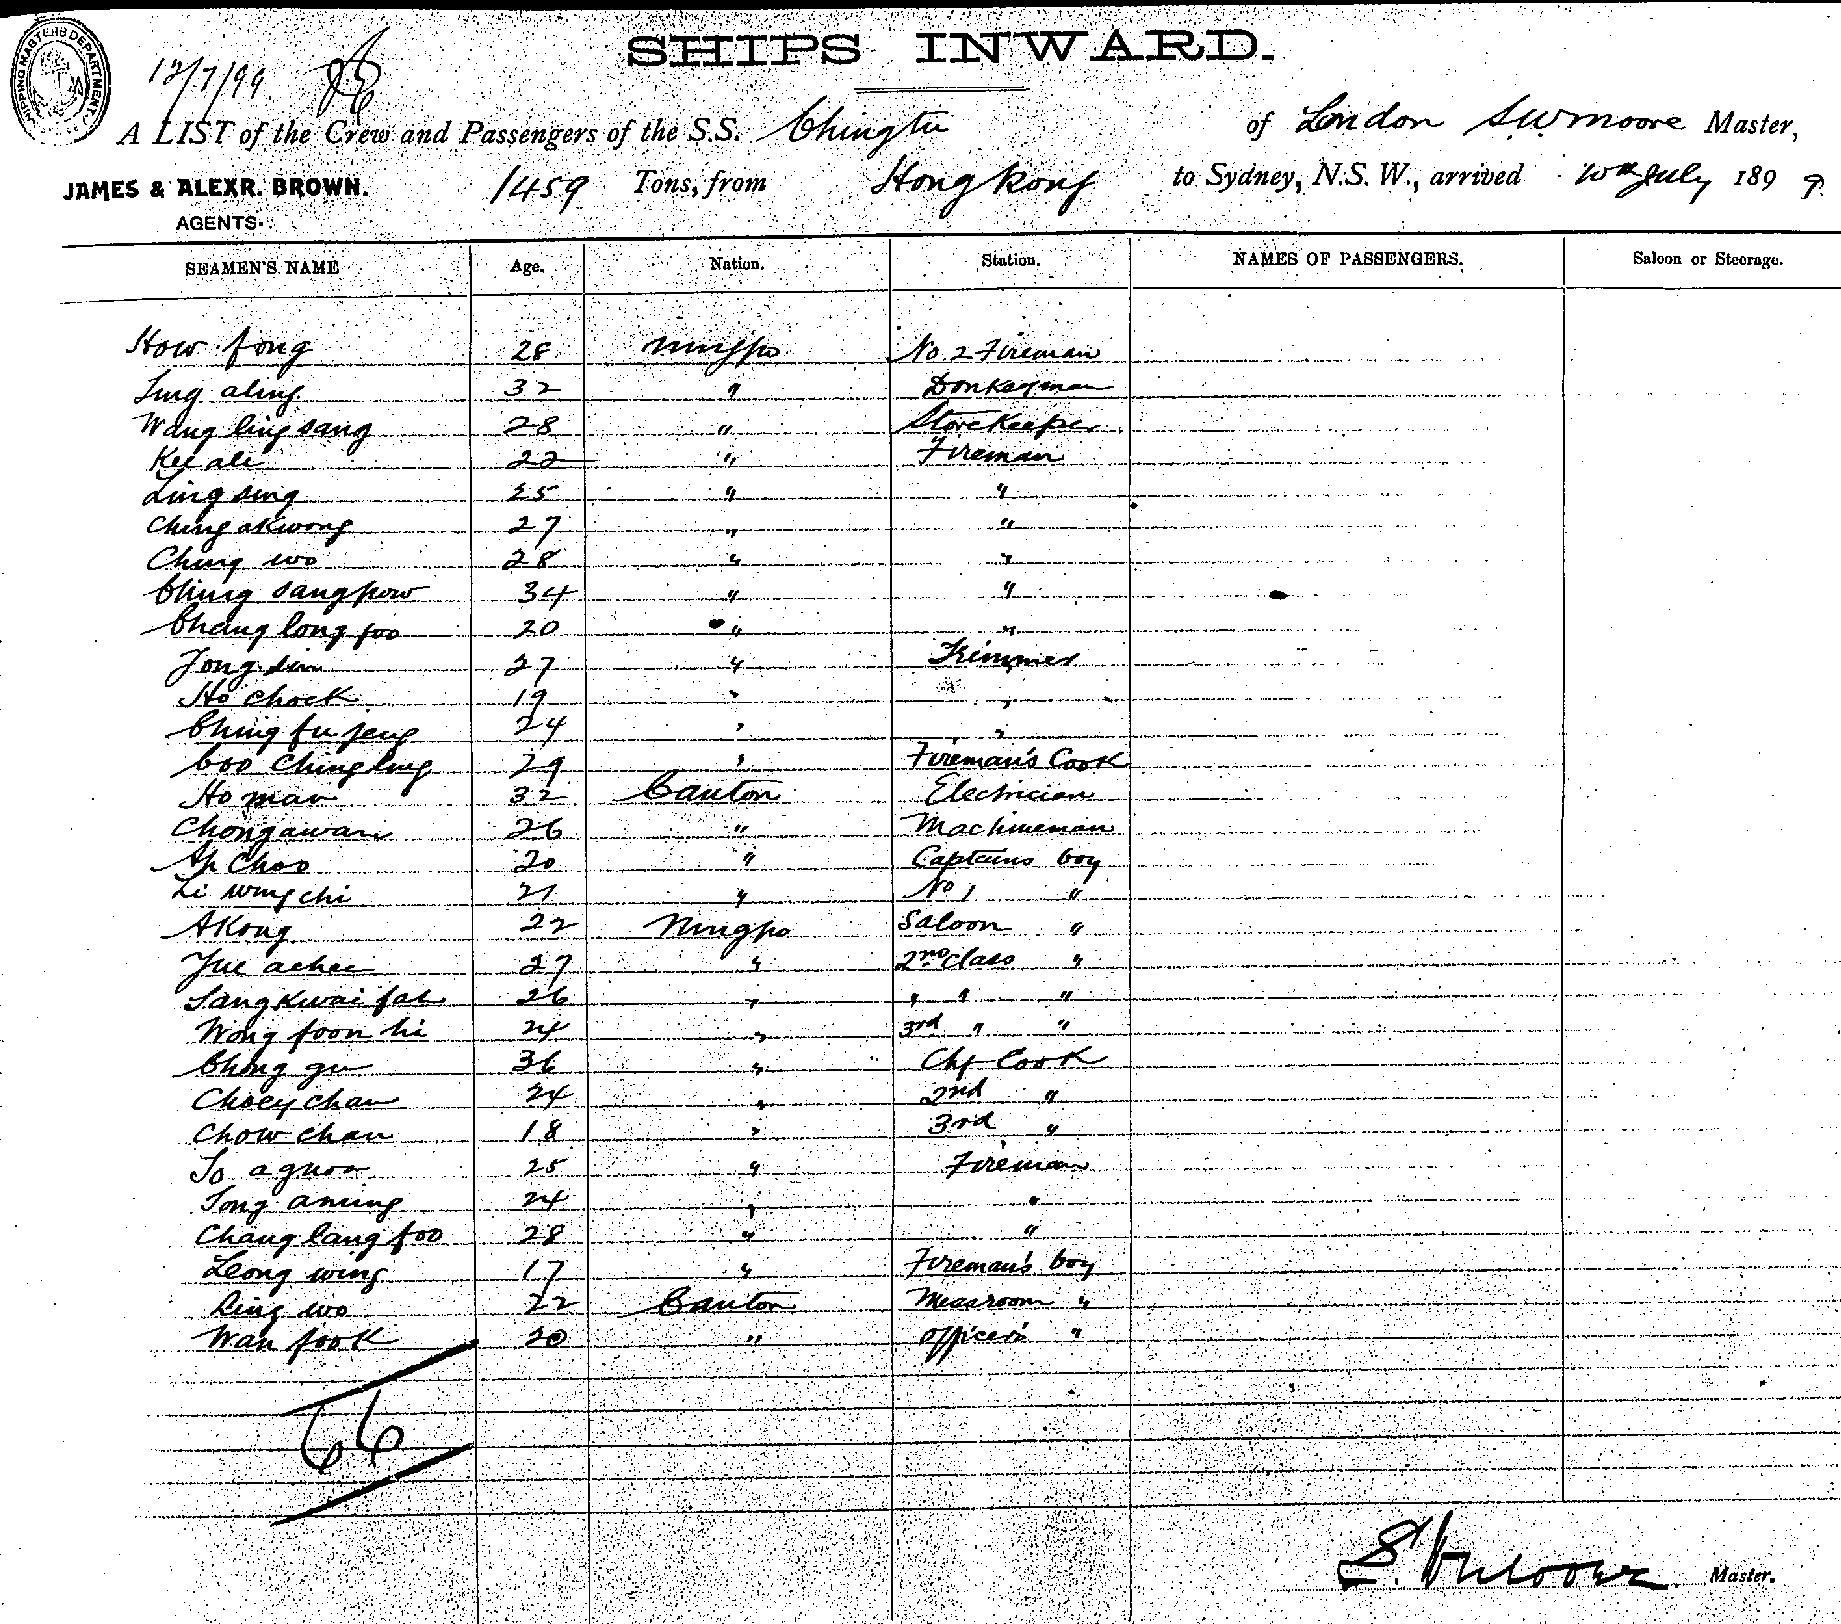 SHIPPING MASTERS DEPARTMENT
12/7/99
SHIPS INWARD.
A LIST of the Crew and Passengers of the S.S. Chingtu of London S.W. Moore Master,
JAMES & ALEXR. BROWN. 1459 Tons, from Hong Kong to Sydney, N.S.W., arrived 10th July 1899
AGENTS.
SEAMEN'S NAME Age. Nation. Station. NAMES OF PASSENGERS. Saloon or Steerage.
How fong 28 Ningpo No 2 Fireman
Ling aling 32 " Donkeyman
Wang ling sang 28 " Storekeeper
Kee ah 22 " Fireman
Ling sing 25 " "
Ching akwong 27 " "
Ching wo 28 " "
Ching sang pow 34 " "
Chang long foo 20 " "
Jong sin 27 " Trimmer
Ho chock 19 " "
Ching fu peng 24 " "
Coo Ching ling 29 " Fireman's Cook
Ho man 32 Canton Electrician
Chong awan 26 " Machineman
Ah Choo 20 " Captains boy
Li wing chi 21 " No 1 "
AKong 22 Ningpo Saloon "
Yue achee 27 " 2nd Class "
Sang Kwai fat 26 " " " "
Wong foon hi 24 " 3rd " "
Ching gu 36 " Chf Cook
Choey chan 24 " 2nd "
Chow chan 18 " 3rd "
So aguon 25 " Fireman
Song aming 24 " "
Chang lang foo 28 " "
Leong wing 17 " Fireman's boy
Ling wo 22 Canton Messroom "
Wan fook 20 " officer's "
66
Master.